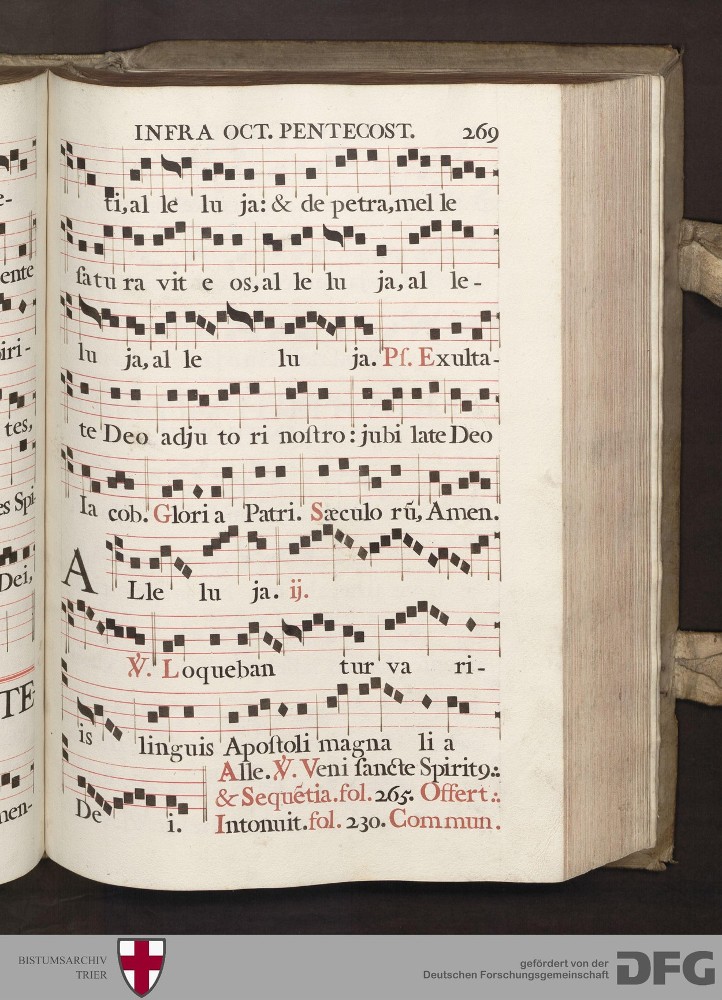 INFRA OCT. PENTECOST. 269
ti, al le lu ja: & de petra, mel le
ſatu ra vit e os, al le lu ja, al le-
lu ja, al le lu ja. Pſ. Exulta-
te Deo adju to ri noſtro: jubi late Deo
Ia cob. Glori a Patri. Sæculo rũ, Amen.
A
Lle lu ja. ij.
℣. Loqueban tur va ri-
is linguis Apoſtoli magna li a
Alle. ℣. Veni ſancte Spirit9.:
De i.
& Sequẽtia. fol. 265. Offert.:
Intonuit. fol. 230. Commun.
e-
ente
iri-
tes,
es Spi
Dei,
TE
men-
BISTUMSARCHIV
TRIER
gefördert von der
Deutschen Forschungsgemeinschaft
DFG